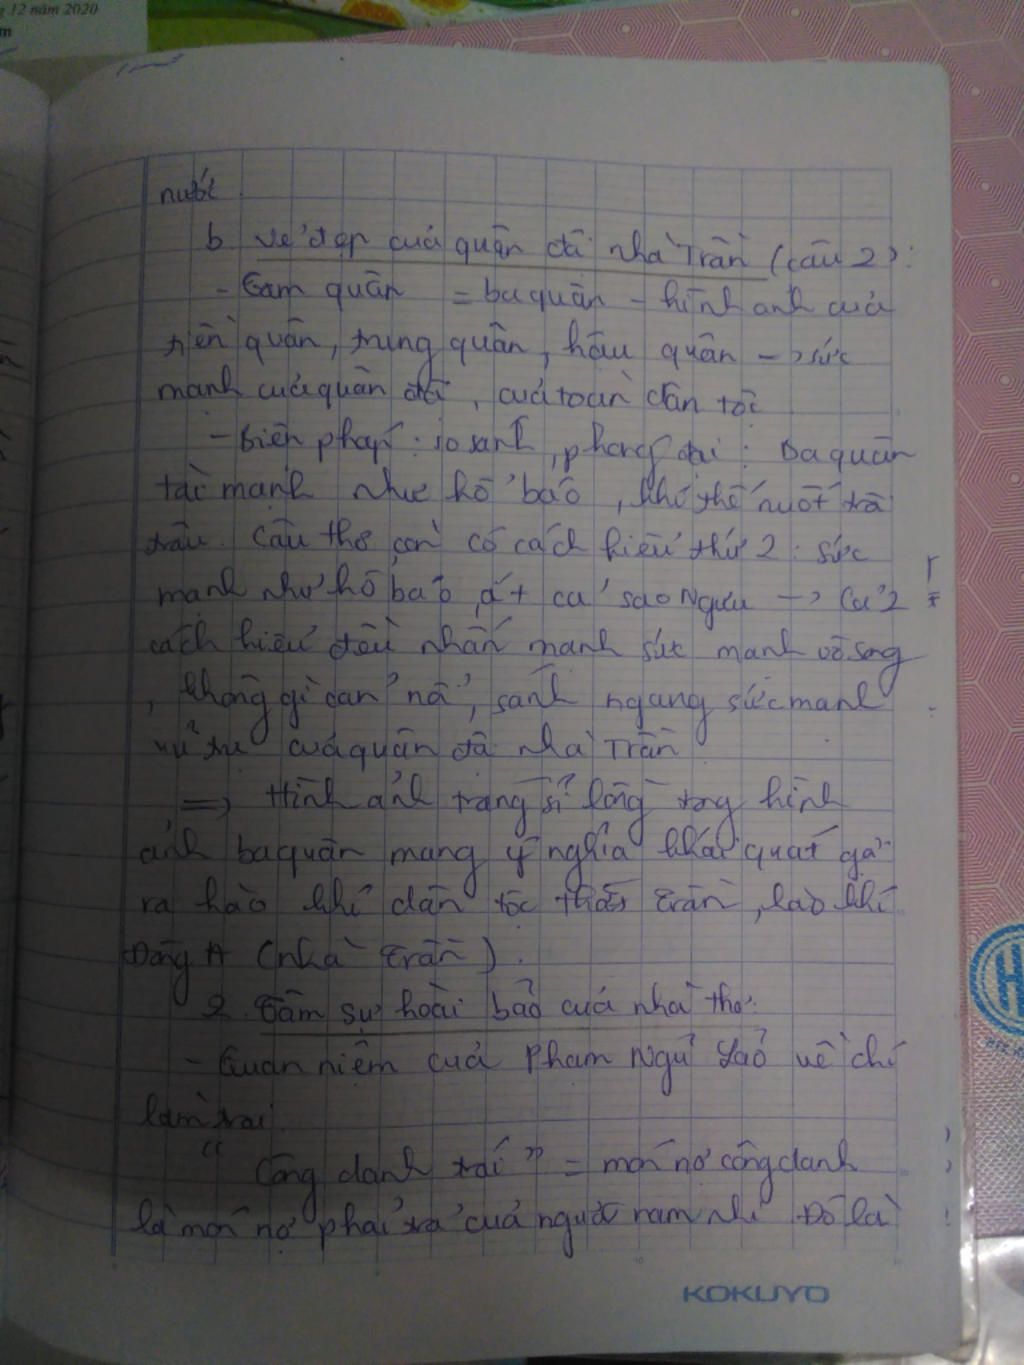 12 năm 2020
m
nước.
b. Vẻ đẹp của quân đội nhà Trần (câu 2):
- Tam quân = ba quân - hình ảnh của
tiền quân, trung quân, hậu quân -> sức
mạnh của quân đội, của toàn dân tộc
- Biện pháp: so sánh, phóng đại: Ba quân
tài mạnh như hổ báo, khí thế nuốt trôi
trâu. Câu thơ còn có cách hiểu thứ 2: sức
mạnh như hổ báo, át cả sao Ngưu -> Cả 2
cách hiểu đều nhấn mạnh sức mạnh vô song
, không gì cản nổi, sánh ngang sức mạnh
vũ trụ của quân đội nhà Trần
=> Hình ảnh tráng sĩ lồng trong hình
ảnh ba quân mang ý nghĩa khái quát gợi
ra hào khí dân tộc thời Trần, hào khí
Đông A (nhà Trần).
2. Tâm sự hoài bão của nhà thơ:
- Quan niệm của Phạm Ngũ Lão về chí
làm trai.
"Công danh trái" = món nợ công danh
là món nợ phải trả của người nam nhi. Đó là
KOKUYO